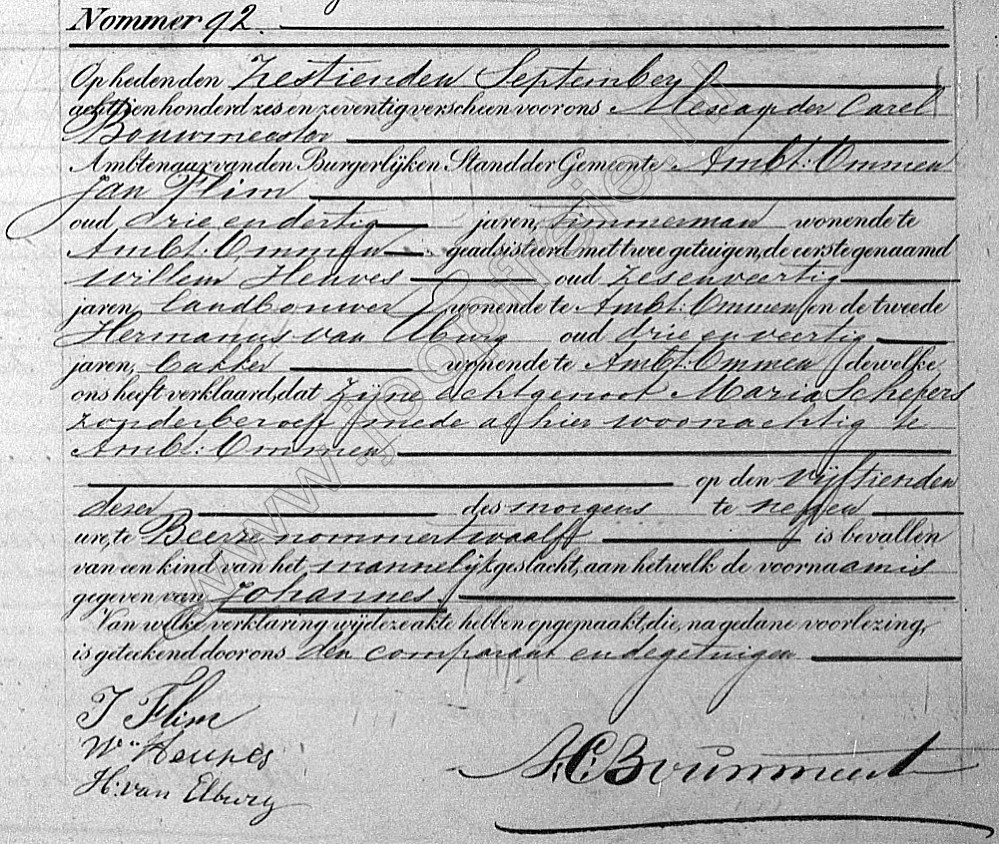 Nommer 92.
Op heden den Zestienden September
achttienhonderd zes en zeventig verscheen voor ons Alexander Carel
Bouwmeester
Ambtenaar van den Burgerlijken Stand der Gemeente Ambt: Ommen
Jan Flim
oud drie en dertig jaren, timmerman wonende te
Ambt: Ommen geadsisteerd met twee getuigen, de eerste genaamd
Willem Heuves oud zesenveertig
jaren, landbouwer wonende te Ambt: Ommen en de tweede
Hermanus van Elburg oud drie en veertig
jaren, bakker wonende te Ambt: Ommen dewelke
ons heeft verklaard, dat zijne echtgenoot Maria Schepers
zonder beroep mede alhier woonachtig te
Ambt: Ommen
op den vijftienden
dezer des morgens te negen
ure, te Beerze nommer twaalf is bevallen
van een kind van het mannelijk geslacht, aan hetwelk de voornaam is
gegeven van Johannes.
Van welke verklaring wij deze akte hebben opgemaakt, die, na gedane voorlezing,
is geteekend door ons den comparant en de getuigen
J Flim
Wm Heuves
H: van Elburg
A.C. Bouwmeester